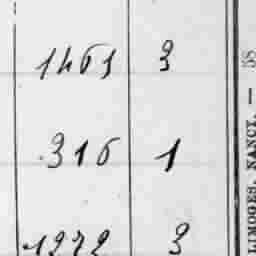 1461 3
316 1
1272 3
LIMOGES, NANCY. — 58